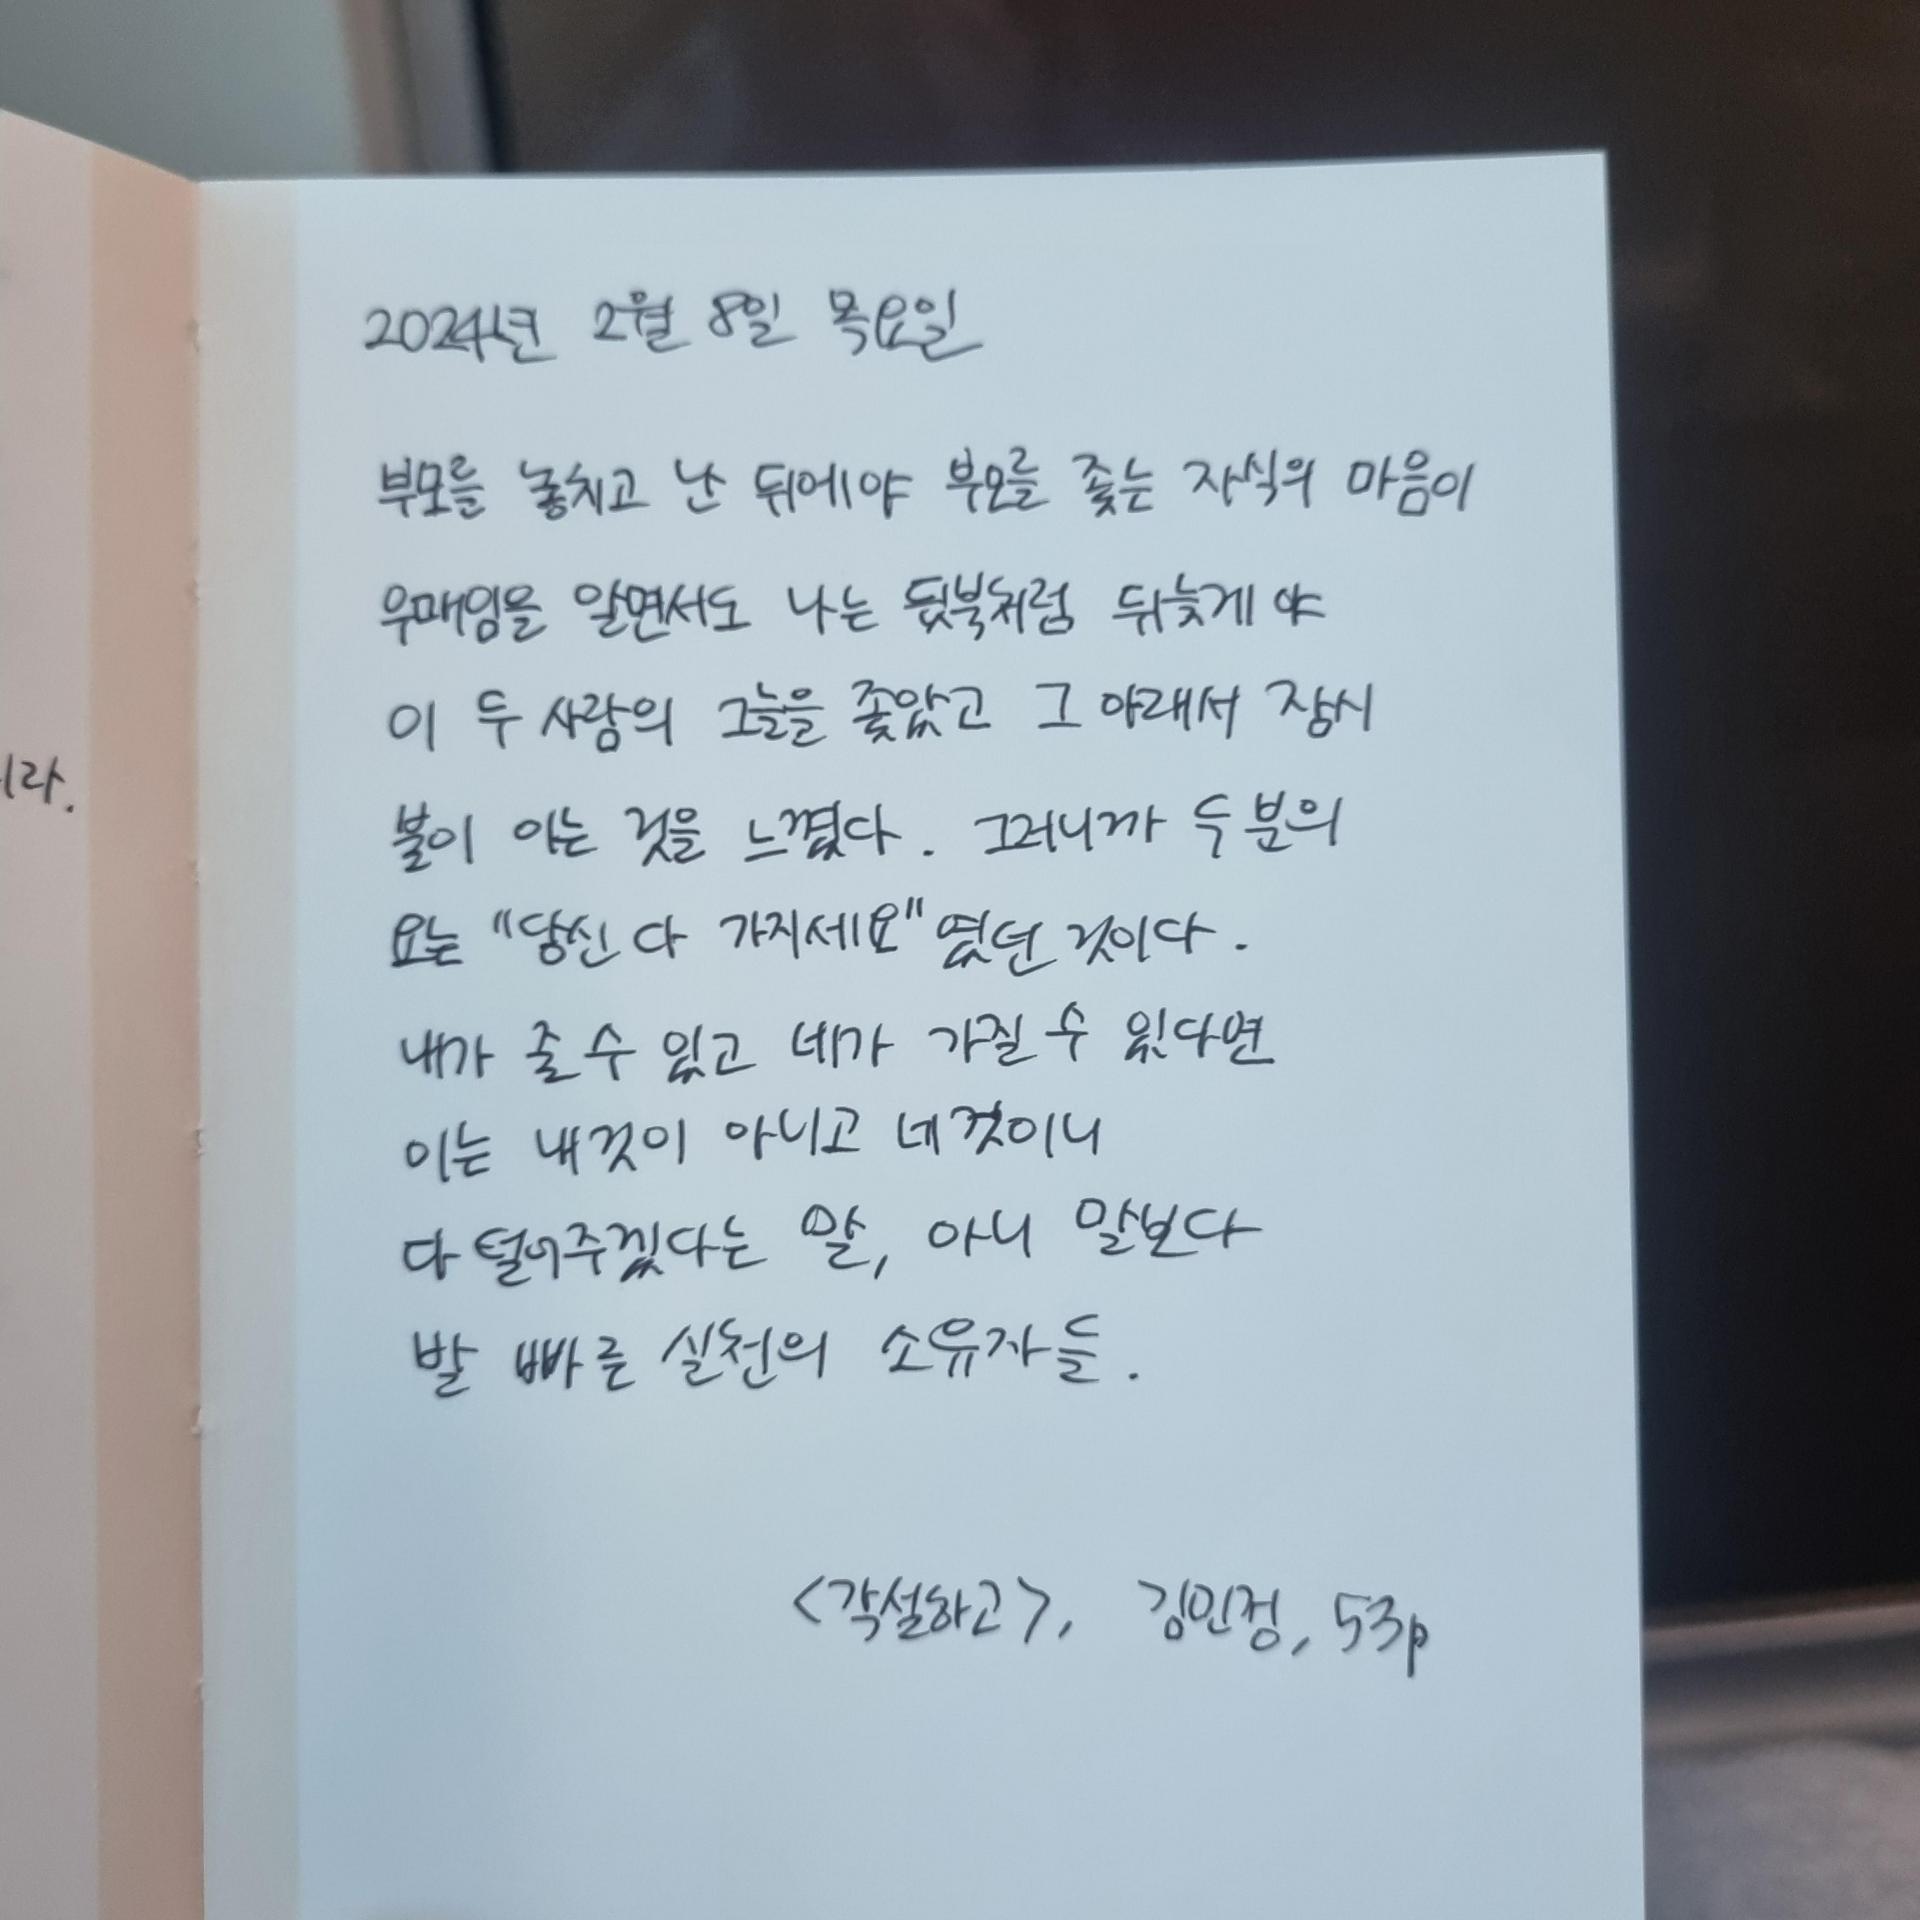 2024년 2월 8일 목요일
부모를 놓치고 난 뒤에야 부모를 좇는 자식의 마음이
우매임을 알면서도 나는 뒷북처럼 뒤늦게야
이 두 사람의 그늘을 좇았고 그 아래서 잠시
볼이 아는 것을 느꼈다. 그러니까 두 분의
요는 "당신 다 가지세요"였던 것이다.
내가 줄 수 있고 네가 가질 수 있다면
이는 내것이 아니고 네것이니
다 털어주겠다는 말, 아니 말보다
발 빠른 실천의 소유자들.
<각설하고>, 김민정, 53p
라.